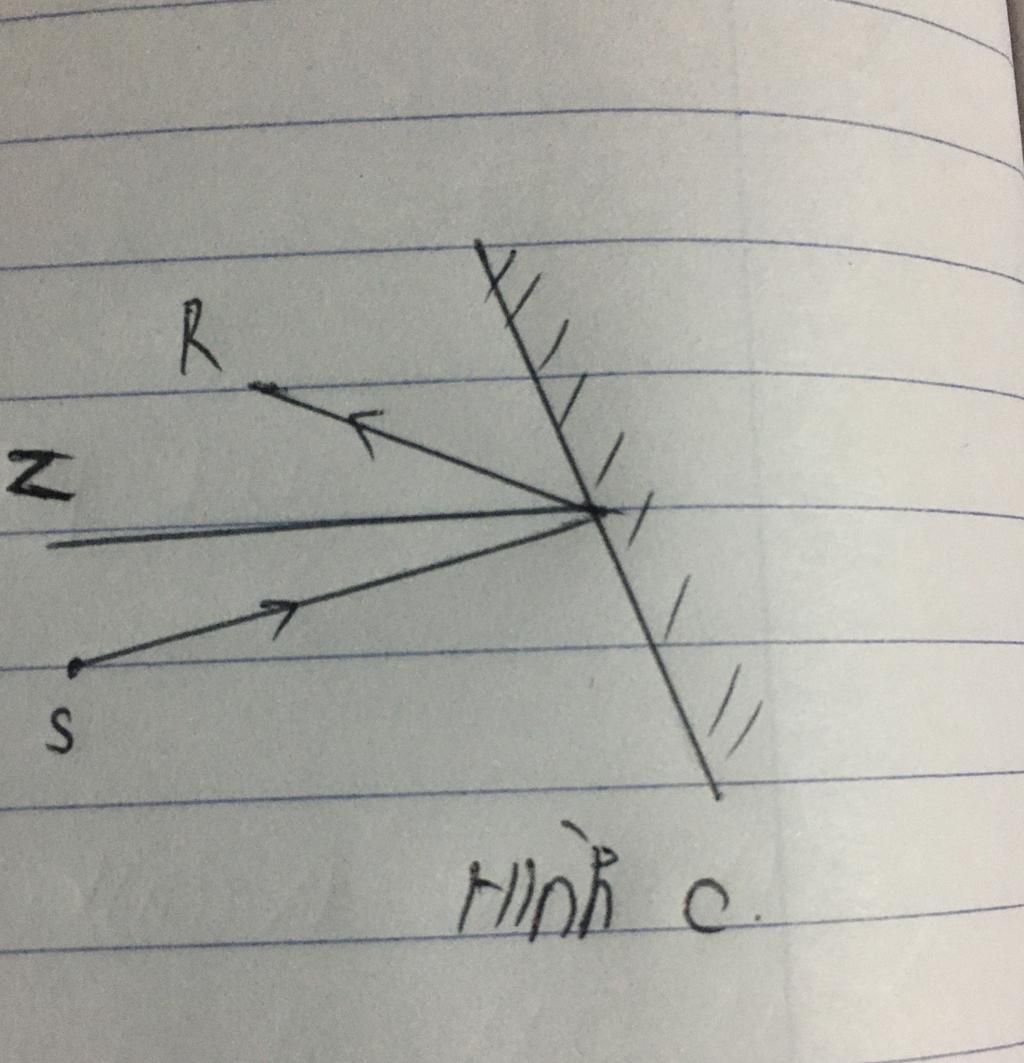 R
N
S
Hình c.